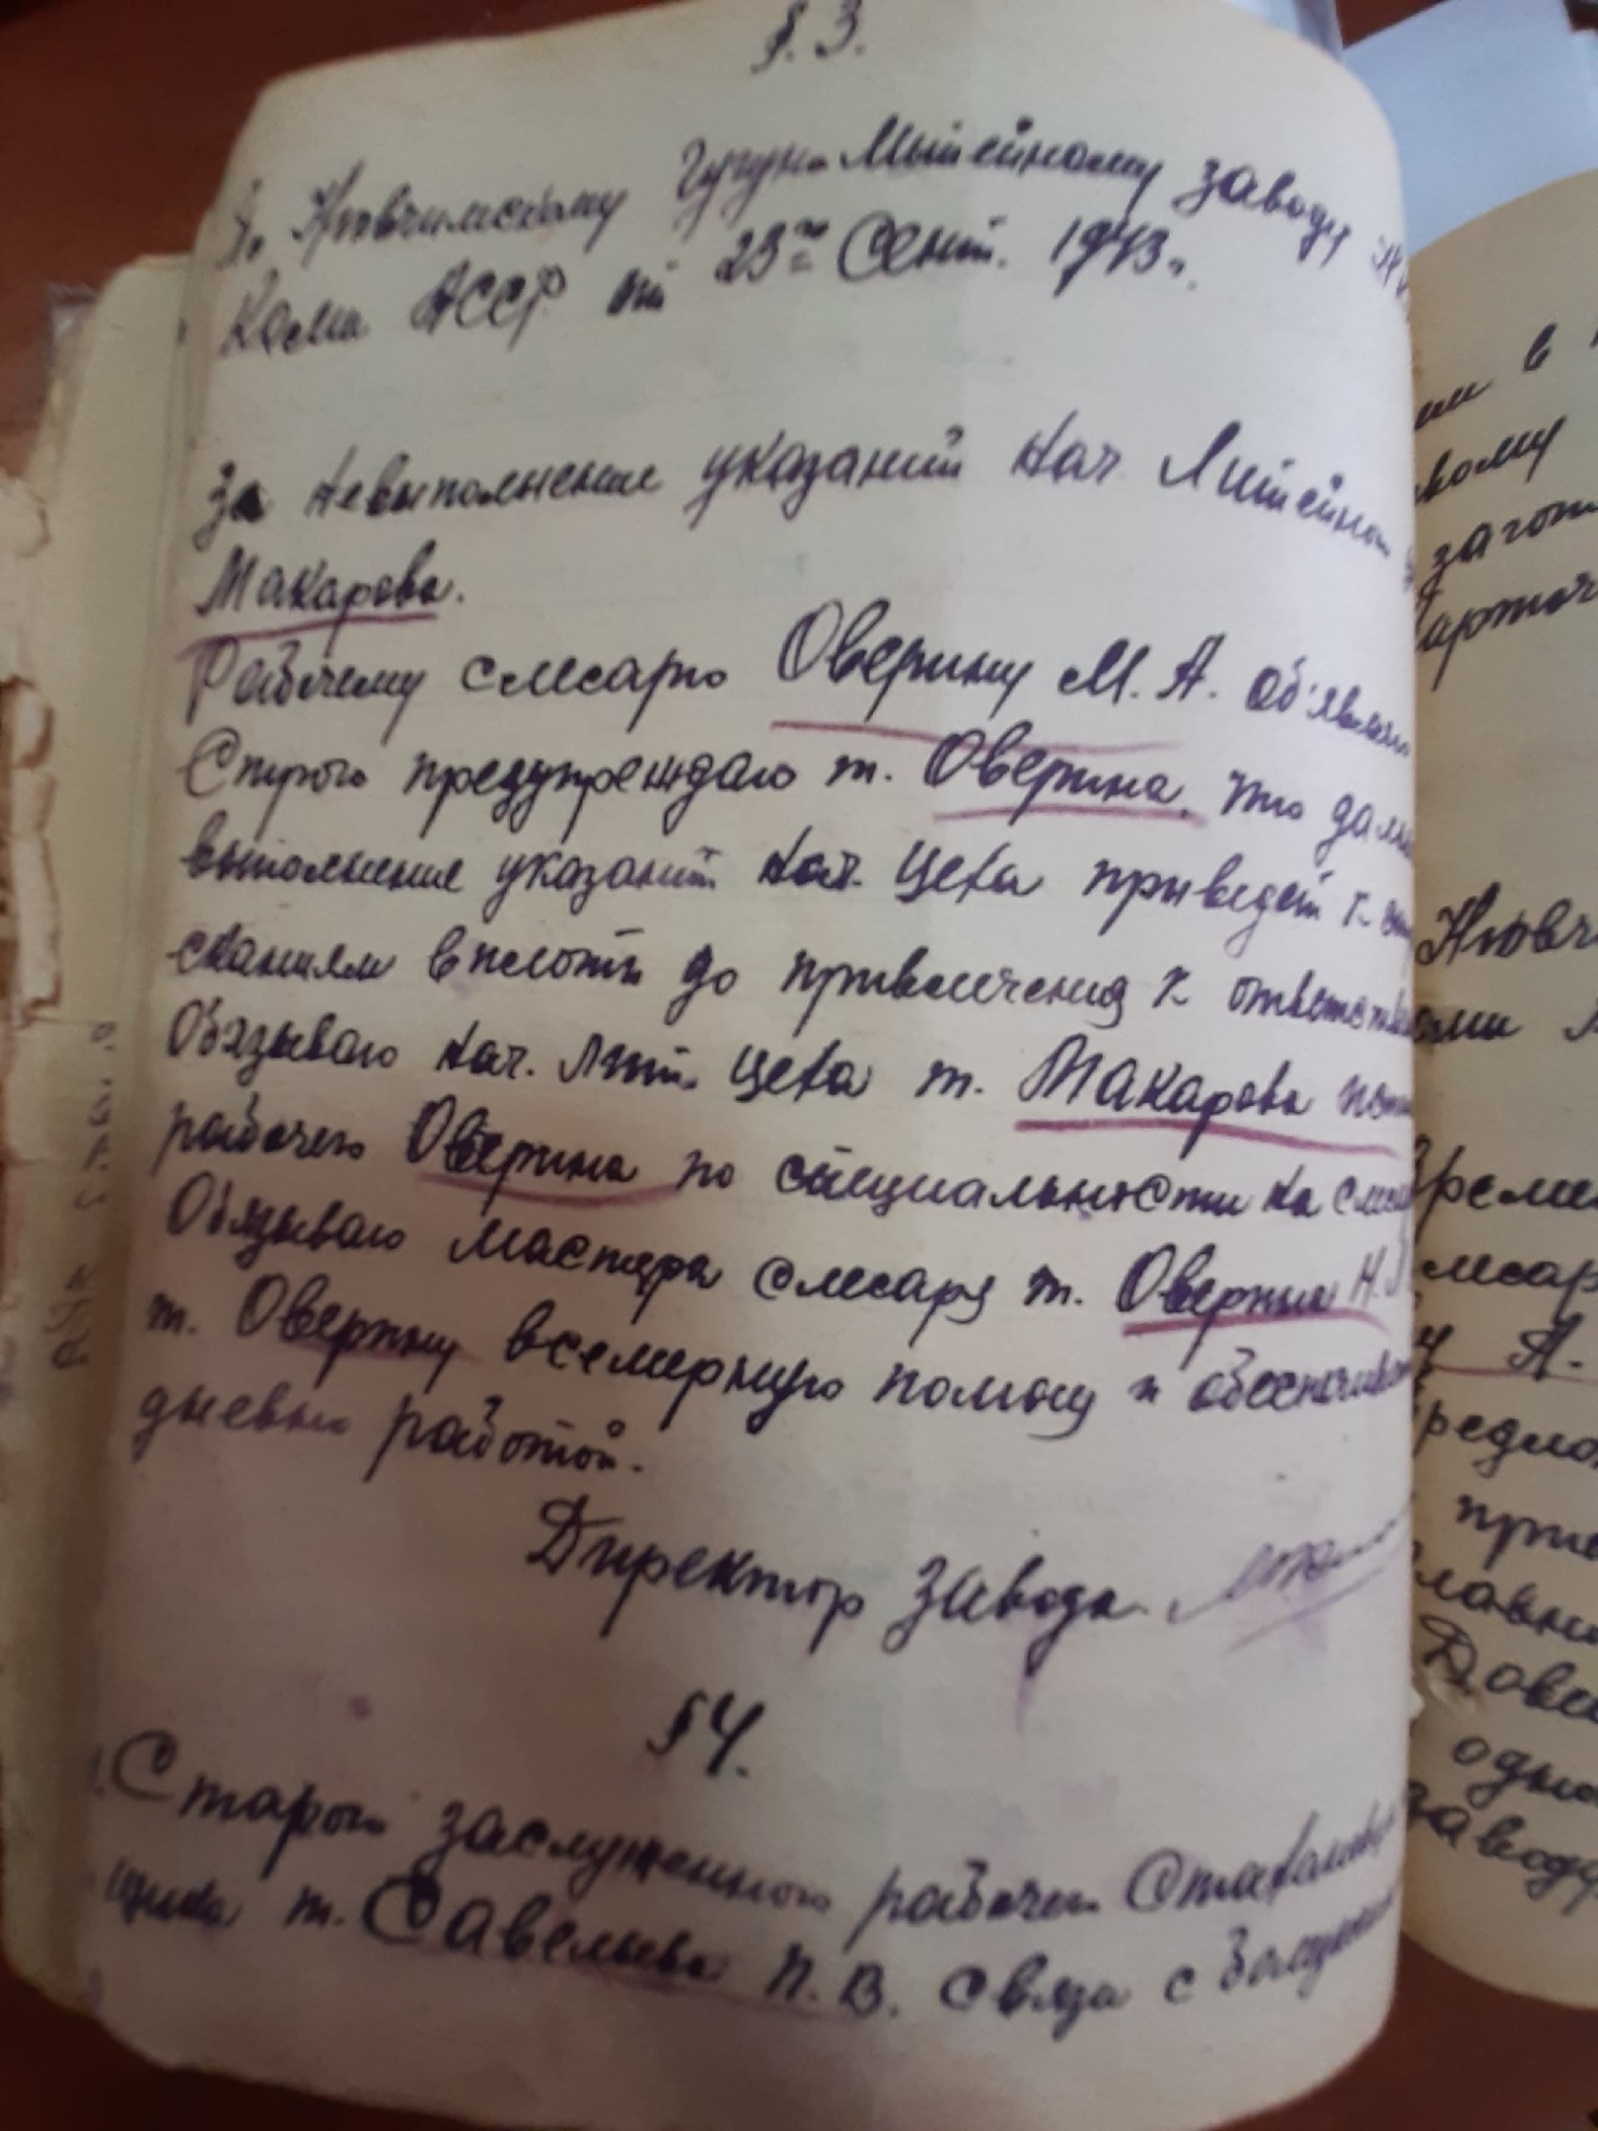 §. 3.
По Нювчимскому Чугуно Литейному заводу
Коми АССР от 23го Сент. 1943 г.
За невыполнение указаний нач Литейного
Макарова.
Рабочему слесарю Оверину М. А. об'явля
Строго предупреждаю т. Оверина, что даль
выполнение указаний нач. Цеха приведет к
сканиям вплоть до привлечения к ответств
Обязываю нач. Лит. цеха т. Макарова
рабочего Оверина по специальности на слес
Обязываю мастера слесаря т. Оверин Н.
т. Оверину всемерную помощ и обеспечив
дневн работой.
Директор завода
§ 4.
Старого заслуженного рабочего Стаханов
щика т. Савельева П. В. Связи с
им в
кому
загот
Нювч
ами
Време
лесар
у А.
редло
при
главн
Дове
одно
заводу